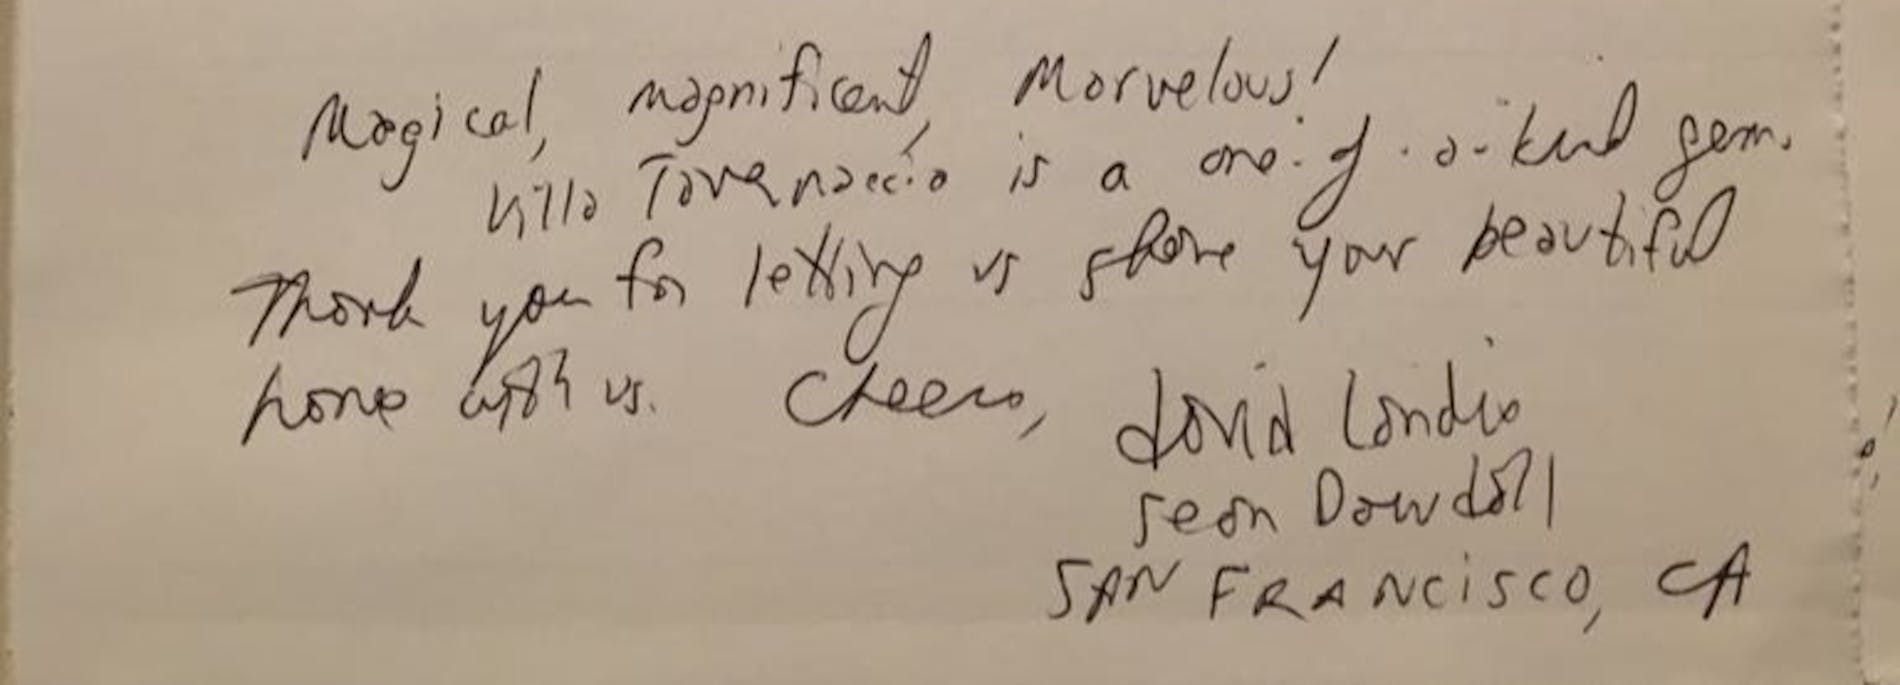 Magical, magnificent, Marvelous!
Villa Tavernaccio is a one-of-a-kind gem.
Thank you for letting us share your beautiful
home with us. Cheers, David Landis
Sean Dowdall
SAN FRANCISCO, CA